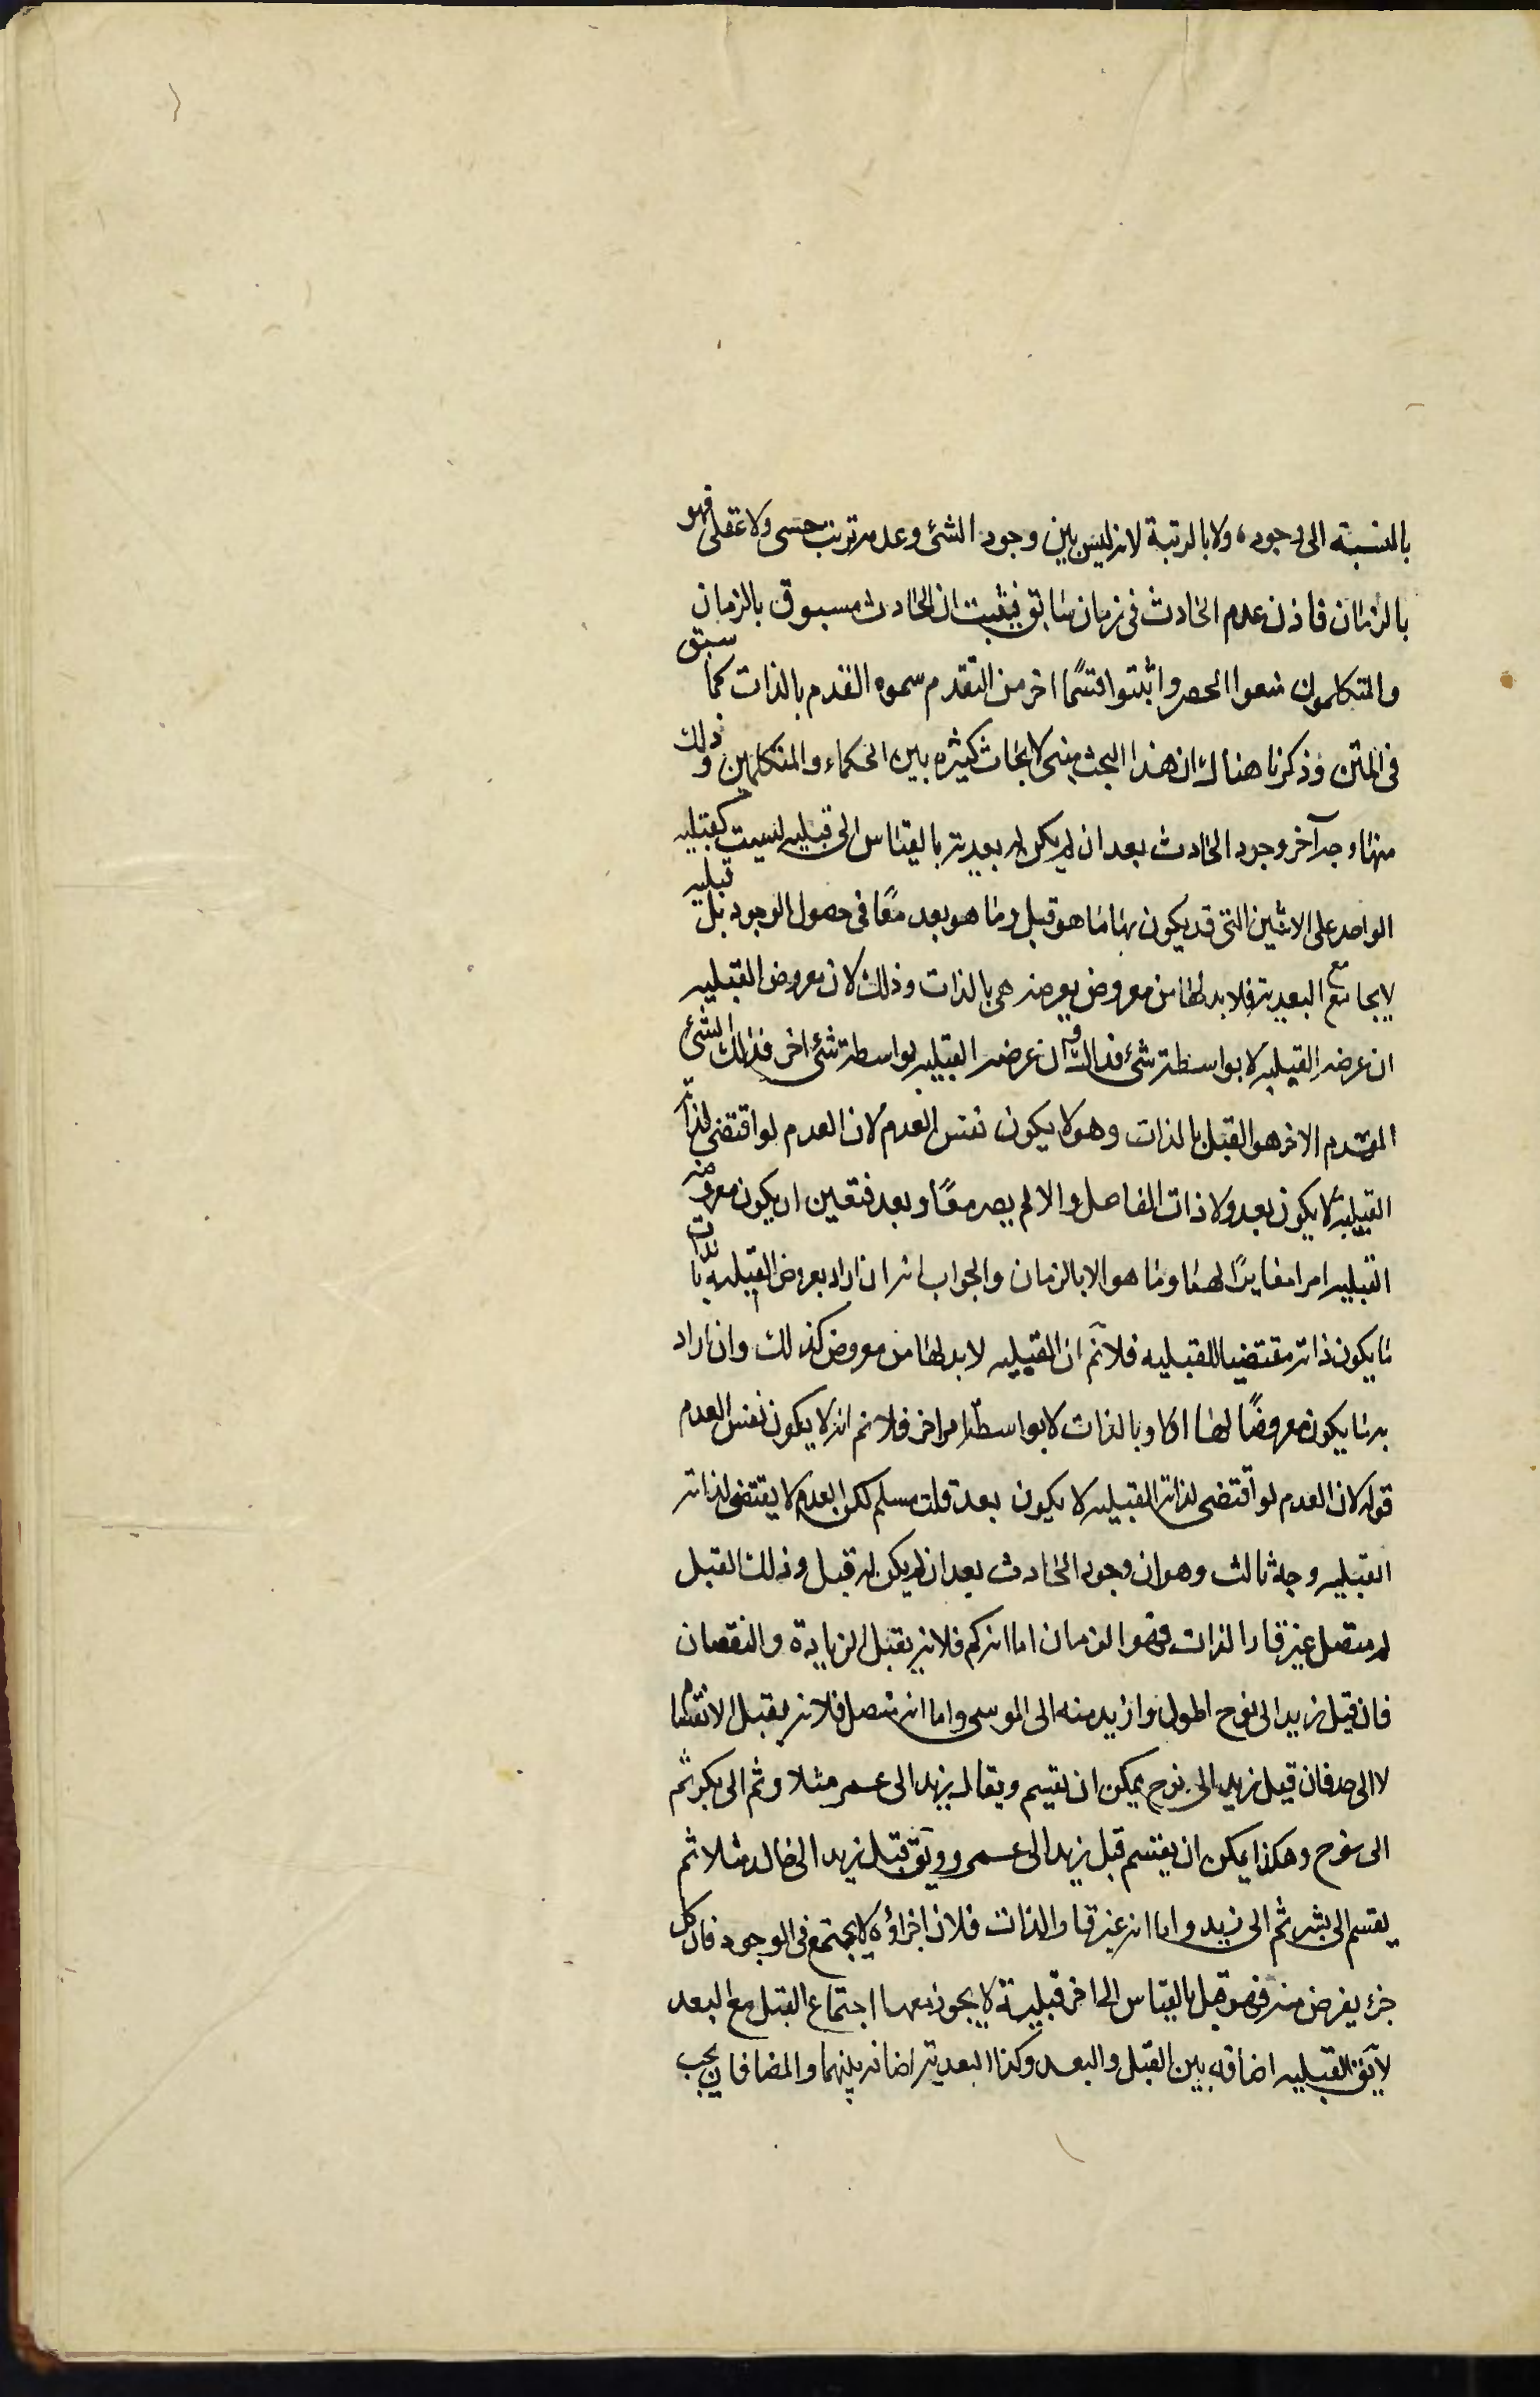 بالنسبة الى وجوده ولا بالرتبة لانه ليس بين وجود الشئ وعدمه ترتب حسى ولا عقلى فهو
بالزمان فاذن عدم الحادث فى زمان سابق فثبت ان الحادث مسبوق بالزمان
والمتكلمون منعوا الحصر واثبتوا قسمًا اخر من التقدم سموه التقدم بالذات كما سبق
فى المتن وذكرنا هناك ان هذا البحث مبنى لابحاث كثيره بين الحكماء والمتكلمين وذلك
منها وجه آخر وجود الحادث بعد ان لم يكن له بعدية بالقياس الى قبليه ليست كقبليه
الواحد على الاثنين التى قد يكون بها ما هو قبل وما هو بعد معًا فى حصول الوجود بل قبليه
لا يجامع مع البعدية فلا بد لها من معروض يعرضه هى بالذات وذلك لان معروض القبليه
ان عرضه القبليه لا بواسطة شئ فذاك وان عرضه القبليه بواسطة شئ اخر فذلك الشئ
المتقدم الاخر هو القبل بالذات وهو لا يكون نفس العدم لان العدم لو اقتضى لذاته
القبلية لا يكون بعد ولا ذات الفاعل والا لم يصر معًا وبعد فتعين ان يكون معروضه
القبليه امرا مغايرًا لهما وما هو الا بالزمان والجواب انه ان اراد بعروض القبليه بالذات
ما يكون ذاته مقتضيا للقبليه فلانم ان القبليه لا بد لها من معروض كذلك وان اراد
به ما يكون معروضًا لها اولا وبالذات لا بواسطة امر اخر فلانم انه لا يكون نفس العدم
قوله لان العدم لو اقتضى لذاته القبليه لا يكون بعد قلت مسلم لكن العدم لا يقتضى لذاته
القبليه وجه ثالث وهو ان وجود الحادث بعد ان لم يكن له قبل وذلك القبل
له متصل غير قار الذات فهو الزمان اما انه كم فلانه يقبل الزيادة والنقصان
فان قبل زيد الى نوح اطول وازيد منه الى الموسى واما انه متصل فلانه يقبل الانقسام
لا الى حد فان قبل زيد الى نوح يمكن ان تقسم ويقال زيد الى عمر مثلا وثم الى بكر ثم
الى نوح وهكذا يمكن ان يقسم قبل زيد الى عمرو ويق قبل زيد الى خالد مثلا ثم
يقسم الى بشر ثم الى زيد واما انه غير قار الذات فلان اجزاؤه لا يجتمع فى الوجود فان كل
جزء يفرض منه فهو قبل بالقياس الى اخر قبلية لا يجوز معها اجتماع القبل مع البعد
لا يق القبليه اضافه بين القبل والبعد وكذا البعدية اضافه بينهما والمضافان يجب